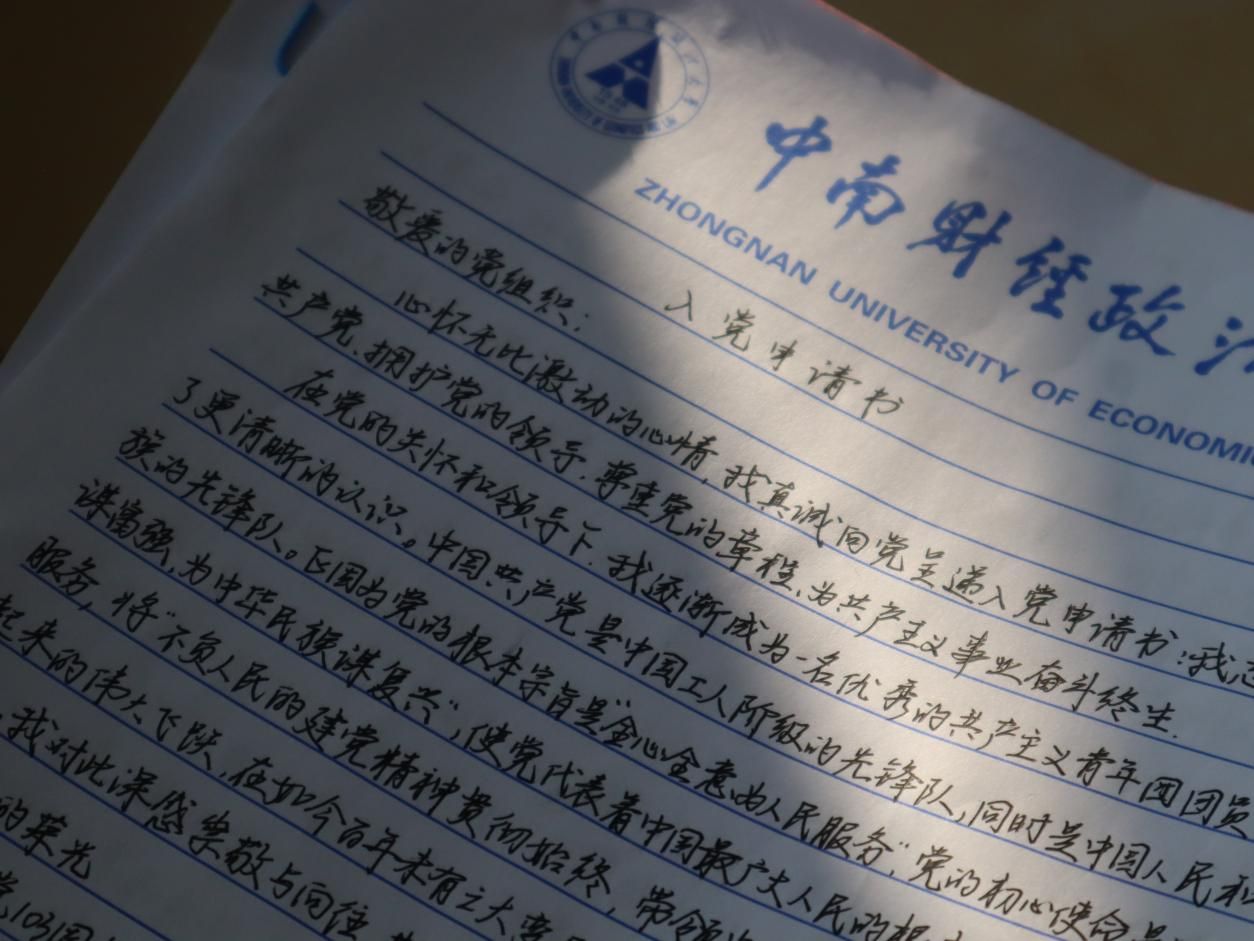 中南财经政法
ZHONGNAN UNIVERSITY OF ECONOMI
入党申请书
敬爱的党组织：
心怀无比激动的心情，我真诚向党呈递入党申请书：我志
共产党、拥护党的领导、尊重党的章程、为共产主义事业奋斗终生.
在党的关怀和领导下，我逐渐成为一名优秀的共产主义青年团团员
了更清晰的认识。中国共产党是中国工人阶级的先锋队，同时是中国人民和
族的先锋队。正因为党的根本宗旨是“全心全意为人民服务”，党的初心使命是
谋富强，为中华民族谋复兴”，使党代表着中国最广大人民的根
服务，将“不负人民的建党精神贯彻始终，带领
起来的伟大飞跃，在如今百年未有之大变
，我对此深感崇敬与向往
的荣光